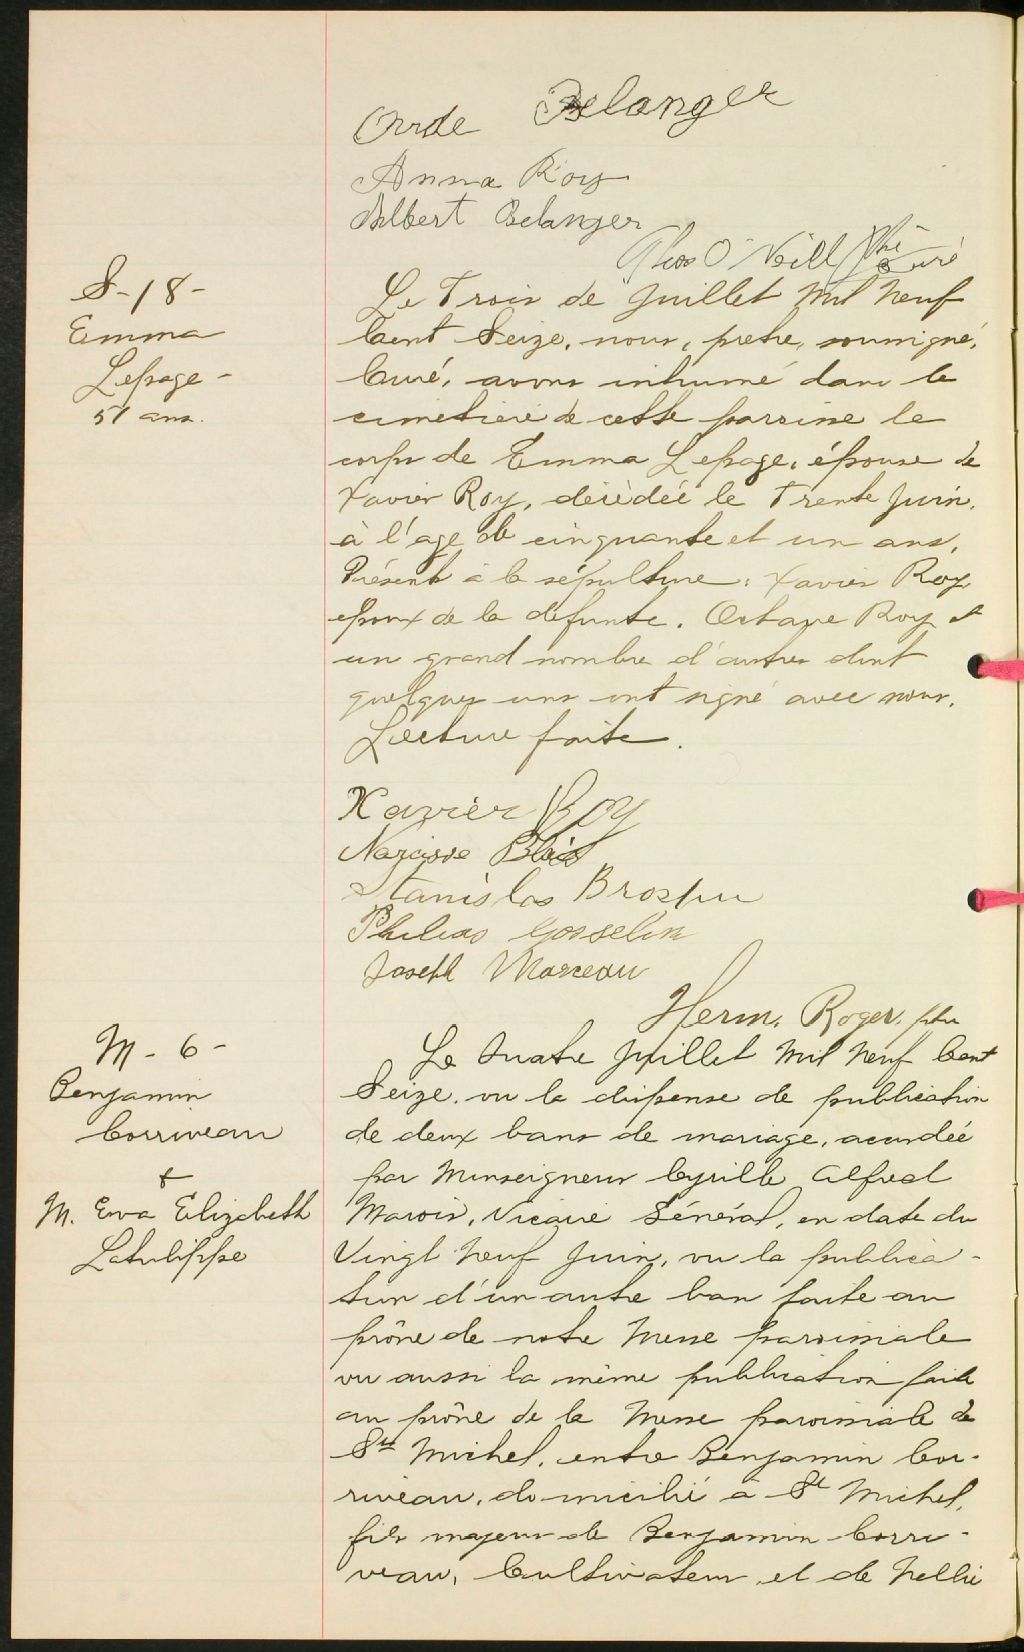 Belanger
Anna Roy
Albert Belanger
O'Neill Ptre Curé
S-18-
Emma
Lepage-
51 ans.
Le Trois de Juillet Mil Neuf
Cent Seize, nous, pretre, soussigné,
Curé, avons inhumé dans le
cimetière de cette paroisse le
corps de Emma Lepage, épouse de
Xavier Roy, décédée le Trente Juin,
à l'age de cinquante et un ans.
Présent à la sépulture: Xavier Roy
epoux de la défunte. Octave Roy et
un grand nombre d'autres dont
quelques uns ont signé avec nous.
Lecture faite.
Xavier Roy
Narcisse Blais
Stanislas
Philias Gosselin
Joseph Marceau
Herm. Roger, ptre
M-6-
Benjamin
Corriveau
&
M. Eva Elizabeth
Latulippe
Le Quatre Juillet Mil Neuf Cent
Seize, vu la dispense de publication
de deux bans de mariage, accordée
par Monseigneur Cyrille Alfred
Marois, Vicaire Général, en date du
Vingt Neuf Juin, vu la publica-
tion d'un autre ban faite au
prône de notre Messe paroissiale
vu aussi la même publication faite
au prône de la Messe paroissiale de
St Michel, entre Benjamin Cor-
riveau, domicilié à St Michel,
fils majeur de Benjamin Corri-
veau, Cultivateur et de Nellie